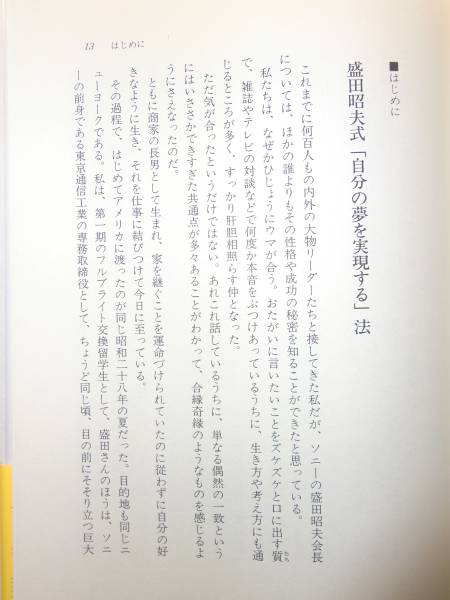 13　はじめに
■はじめに
盛田昭夫式「自分の夢を実現する」法
これまでに何百人もの内外の大物リーダーたちと接してきた私だが、ソニーの盛田昭夫会長
については、ほかの誰よりもその性格や成功の秘密を知ることができたと思っている。
私たちは、なぜかひじょうにウマが合う。おたがいに言いたいことをズケズケと口に出す質たち
で、雑誌やテレビの対談などで何度か本音をぶつけあっているうちに、生き方や考え方にも通
じるところが多く、すっかり肝胆相照らす仲となった。
ただ気が合ったというだけではない。あれこれ話しているうちに、単なる偶然の一致という
にはいささかできすぎた共通点が多々あることがわかって、合縁奇縁のようなものを感じるよ
うにさえなったのだ。
ともに商家の長男として生まれ、家を継ぐことを運命づけられていたのに従わずに自分の好
きなように生き、それを仕事に結びつけて今日に至っている。
その過程で、はじめてアメリカに渡ったのが同じ昭和二十八年の夏だった。目的地も同じニ
ューヨークである。私は、第一期のフルブライト交換留学生として、盛田さんのほうは、ソニ
ーの前身である東京通信工業の専務取締役として、ちょうど同じ頃、目の前にそそり立つ巨大